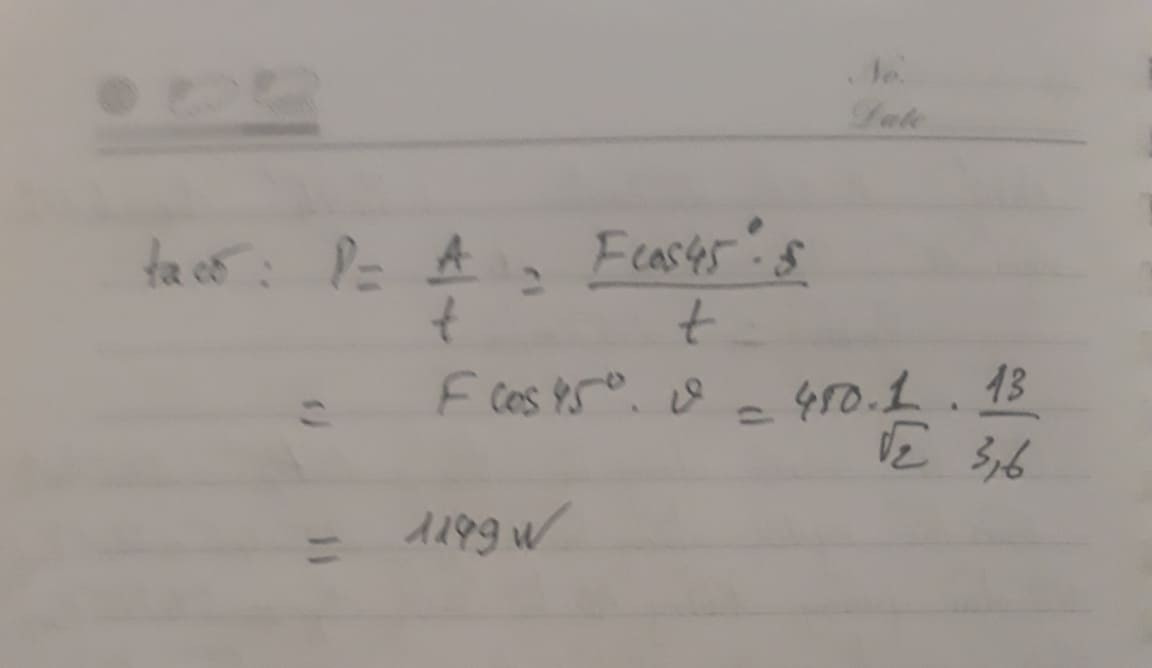 No.
Date
ta có: P = A/t = Fcos45°.s/t
= Fcos45°.v = 450.1/√2.13/3,6
= 1149W